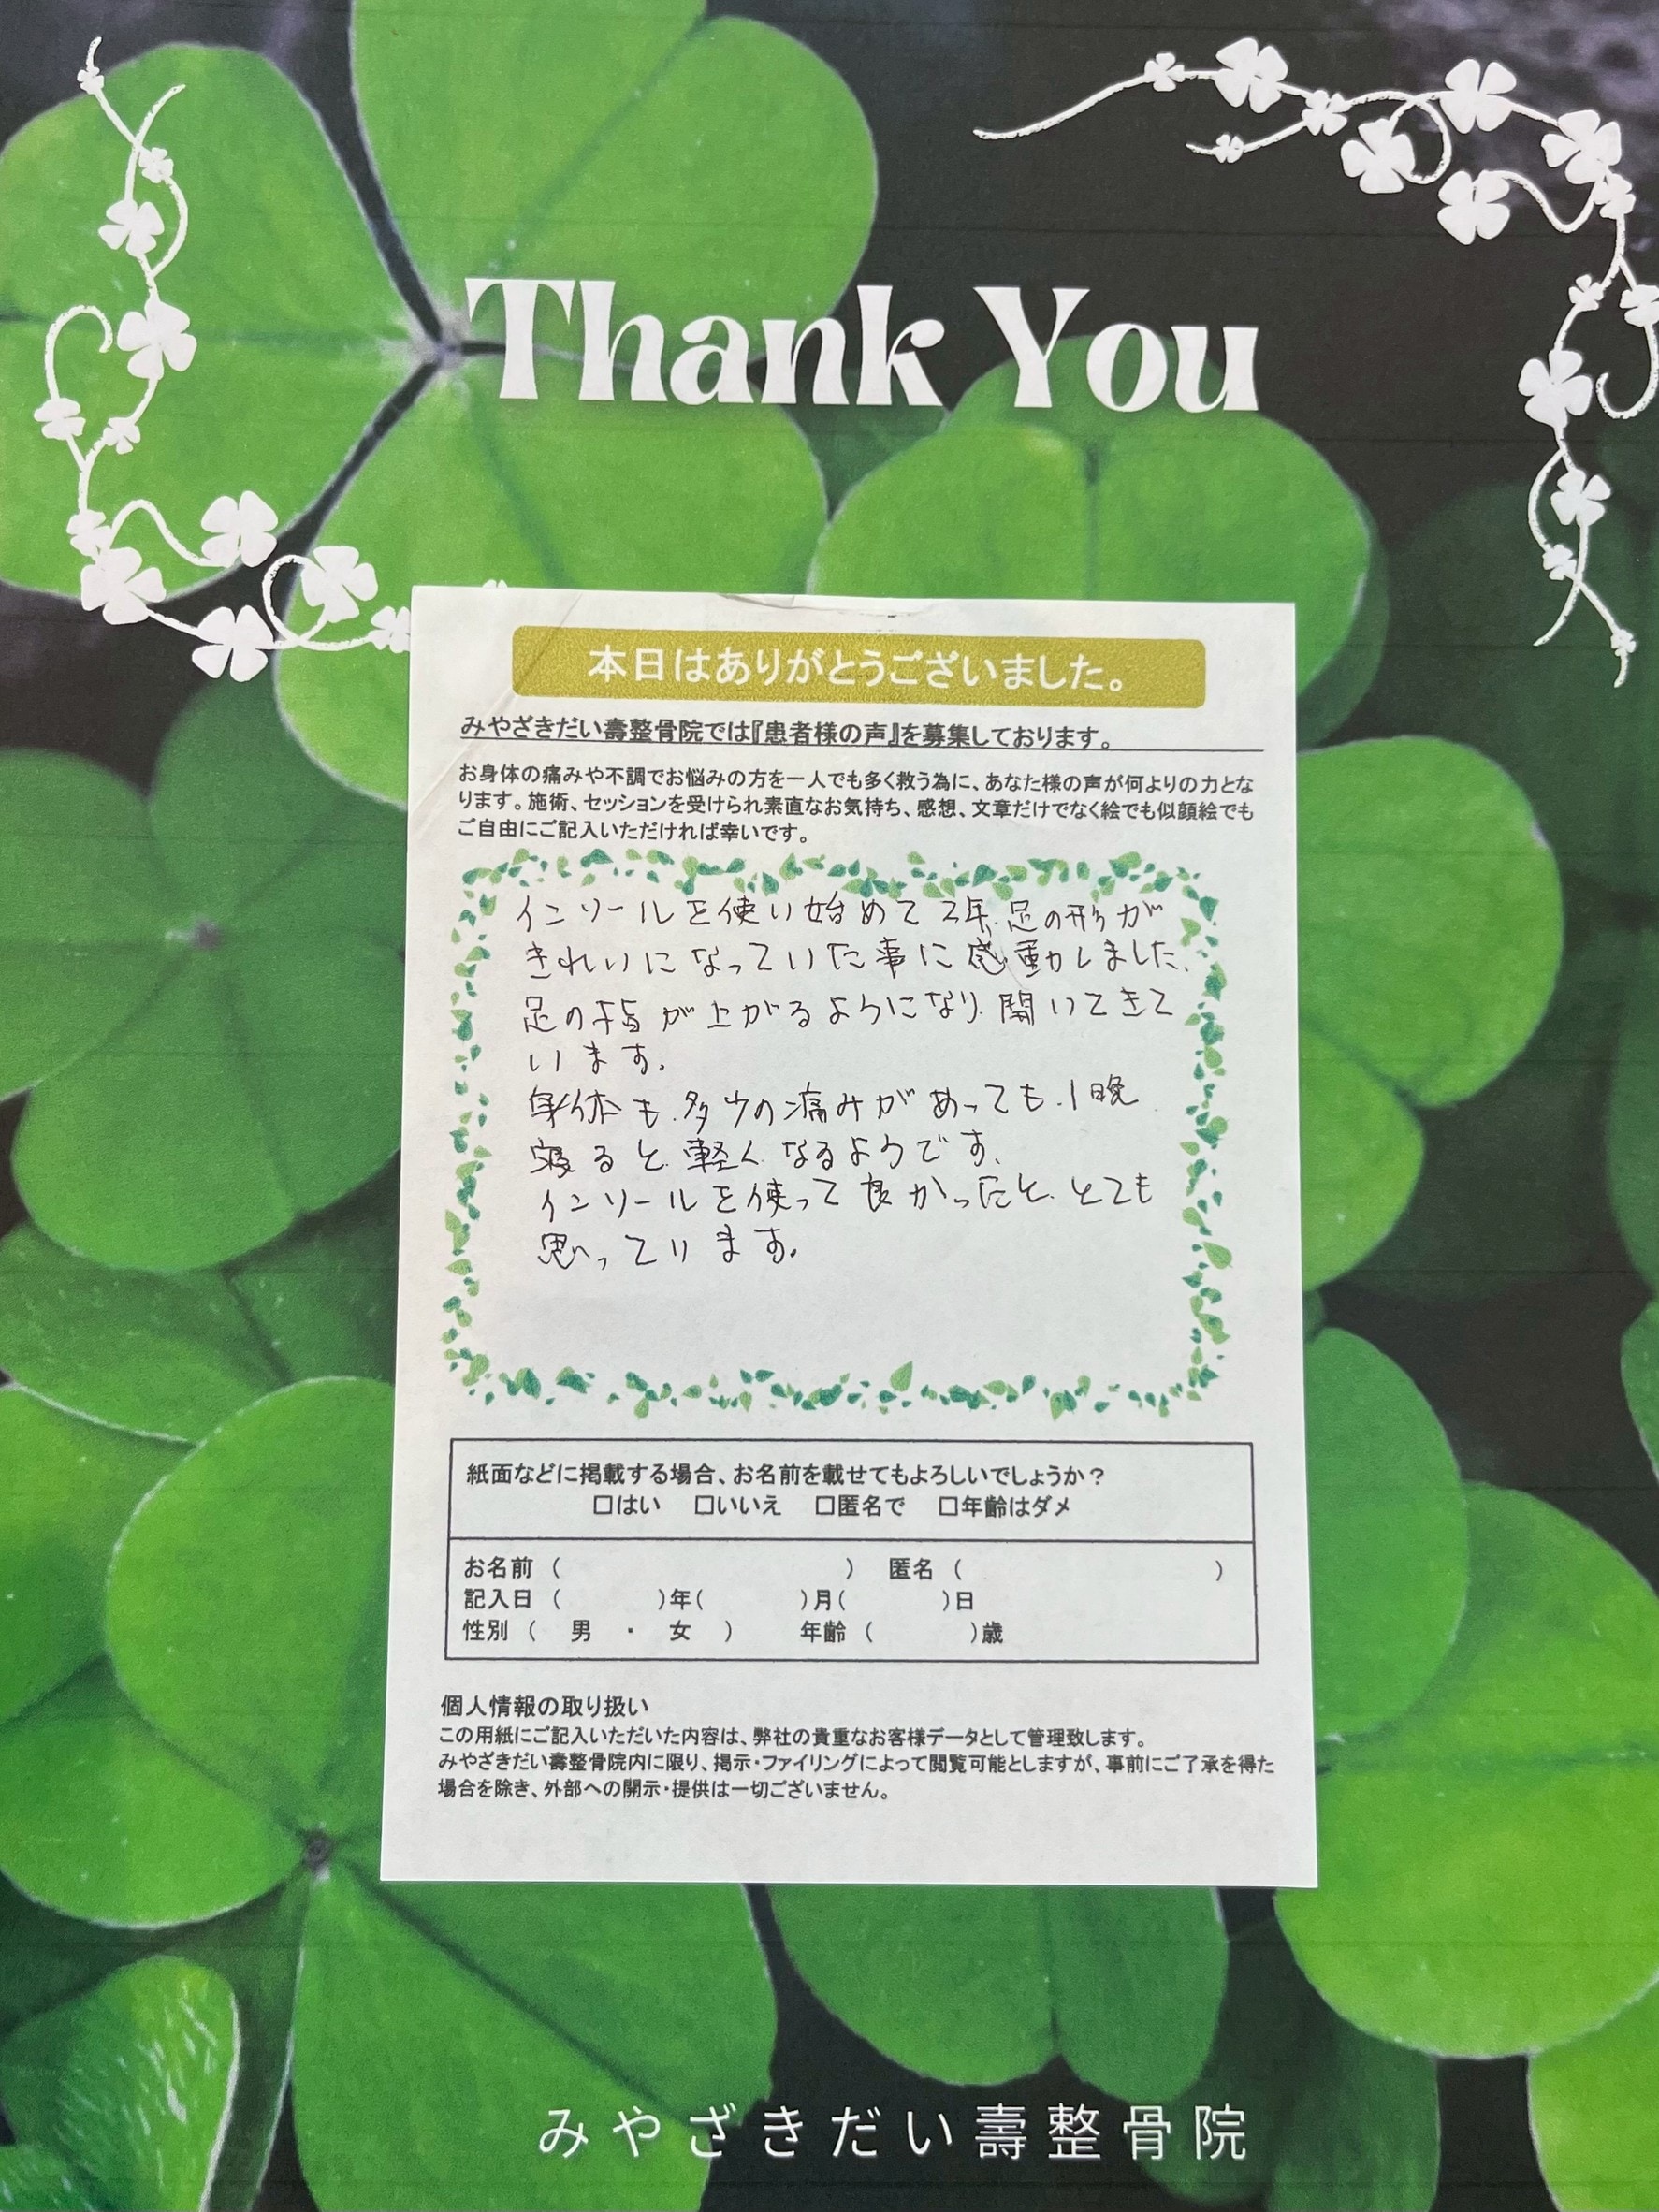 Thank You
本日はありがとうございました。
みやざきだい壽整骨院では『患者様の声』を募集しております。
お身体の痛みや不調でお悩みの方を一人でも多く救う為に、あなた様の声が何よりの力とな
ります。施術、セッションを受けられ素直なお気持ち、感想、文章だけでなく絵でも似顔絵でも
ご自由にご記入いただければ幸いです。
インソールを使い始めて2年、足の形が
きれいになっていた事に感動しました。
足の指が上がるようになり、開いてきて
います。
身体も、多少の痛みがあっても、1晩
寝ると、軽くなるようです。
インソールを使って良かったと、とても
思っています。
紙面などに掲載する場合、お名前を載せてもよろしいでしょうか？
□はい □いいえ □匿名で □年齢はダメ
お名前（ ） 匿名（ ）
記入日（ ）年（ ）月（ ）日
性別（ 男 ・ 女 ） 年齢（ ）歳
個人情報の取り扱い
この用紙にご記入いただいた内容は、弊社の貴重なお客様データとして管理致します。
みやざきだい壽整骨院内に限り、掲示・ファイリングによって閲覧可能としますが、事前にご了承を得た
場合を除き、外部への開示・提供は一切ございません。
みやざきだい壽整骨院